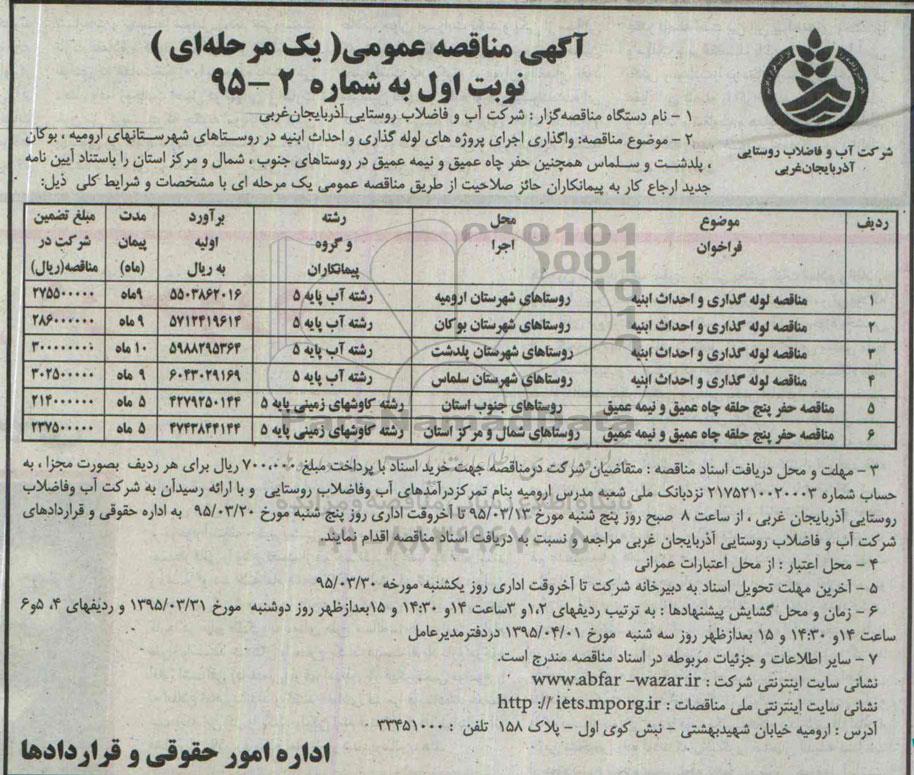 آگهی مناقصه عمومی( یک مرحله‌ای )
نوبت اول به شماره ۲ -۹۵
شرکت آب و فاضلاب روستایی
آذربایجان‌غربی
۱ - نام دستگاه مناقصه‌گزار : شرکت آب و فاضلاب روستایی آذربایجان‌غربی
۲ - موضوع مناقصه: واگذاری اجرای پروژه های لوله گذاری و احداث ابنیه در روستاهای شهرستانهای ارومیه ، بوکان
، پلدشت و سلماس همچنین حفر چاه عمیق و نیمه عمیق در روستاهای جنوب ، شمال و مرکز استان را باستناد آیین نامه
جدید ارجاع کار به پیمانکاران حائز صلاحیت از طریق مناقصه عمومی یک مرحله ای با مشخصات و شرایط کلی ذیل:
ردیف موضوع فراخوان محل اجرا رشته و گروه پیمانکاران برآورد اولیه به ریال مدت پیمان (ماه) مبلغ تضمین شرکت در مناقصه(ریال)
۱ مناقصه لوله گذاری و احداث ابنیه روستاهای شهرستان ارومیه رشته آب پایه ۵ ۵۵۰۳۸۶۲۰۱۶ ۹ماه ۲۷۵۵۰۰۰۰۰
۲ مناقصه لوله گذاری و احداث ابنیه روستاهای شهرستان بوکان رشته آب پایه ۵ ۵۷۱۲۴۱۹۶۱۴ ۹ ماه ۲۸۶۰۰۰۰۰۰
۳ مناقصه لوله گذاری و احداث ابنیه روستاهای شهرستان پلدشت رشته آب پایه ۵ ۵۹۸۸۲۹۵۳۶۴ ۱۰ ماه ۳۰۰۰۰۰۰۰۰
۴ مناقصه لوله گذاری و احداث ابنیه روستاهای شهرستان سلماس رشته آب پایه ۵ ۶۰۴۳۰۲۹۱۶۹ ۹ ماه ۳۰۲۵۰۰۰۰۰
۵ مناقصه حفر پنج حلقه چاه عمیق و نیمه عمیق روستاهای جنوب استان رشته کاوشهای زمینی پایه ۵ ۴۲۷۹۲۵۰۱۴۴ ۵ ماه ۲۱۴۰۰۰۰۰۰
۶ مناقصه حفر پنج حلقه چاه عمیق و نیمه عمیق روستاهای شمال و مرکز استان رشته کاوشهای زمینی پایه ۵ ۴۷۴۳۸۴۴۱۴۴ ۵ ماه ۲۳۷۵۰۰۰۰۰
۳ - مهلت و محل دریافت اسناد مناقصه : متقاضیان شرکت درمناقصه جهت خرید اسناد با پرداخت مبلغ ۷۰۰،۰۰۰ ریال برای هر ردیف بصورت مجزا ، به
حساب شماره ۲۱۷۵۲۱۰۰۲۰۰۰۳ نزدبانک ملی شعبه مدرس ارومیه بنام تمرکزدرآمدهای آب وفاضلاب روستایی و با ارائه رسیدآن به شرکت آب وفاضلاب
روستایی آذربایجان غربی ، از ساعت ۸ صبح روز پنج شنبه مورخ ۹۵/۰۳/۱۳ تا آخروقت اداری روز پنج شنبه مورخ ۹۵/۰۳/۲۰ به اداره حقوقی و قراردادهای
شرکت آب و فاضلاب روستایی آذربایجان غربی مراجعه و نسبت به دریافت اسناد مناقصه اقدام نمایند.
۴ - محل اعتبار : از محل اعتبارات عمرانی
۵ - آخرین مهلت تحویل اسناد به دبیرخانه شرکت تا آخروقت اداری روز یکشنبه مورخه ۹۵/۰۳/۳۰
۶ - زمان و محل گشایش پیشنهادها : به ترتیب ردیفهای ۱،۲و ۳ساعت ۱۴و ۱۴:۳۰ و ۱۵بعدازظهر روز دوشنبه مورخ ۱۳۹۵/۰۳/۳۱ و ردیفهای ۴، ۵و۶
ساعت ۱۴و ۱۴:۳۰ و ۱۵ بعدازظهر روز سه شنبه مورخ ۱۳۹۵/۰۴/۰۱ دردفترمدیرعامل
۷ - سایر اطلاعات و جزئیات مربوطه در اسناد مناقصه مندرج است.
نشانی سایت اینترنتی شرکت : www.abfar -wazar.ir
نشانی سایت اینترنتی ملی مناقصات : http :// iets.mporg.ir
آدرس : ارومیه خیابان شهیدبهشتی - نبش کوی اول - پلاک ۱۵۸ تلفن : ۳۳۴۵۱۰۰۰
اداره امور حقوقی و قراردادها